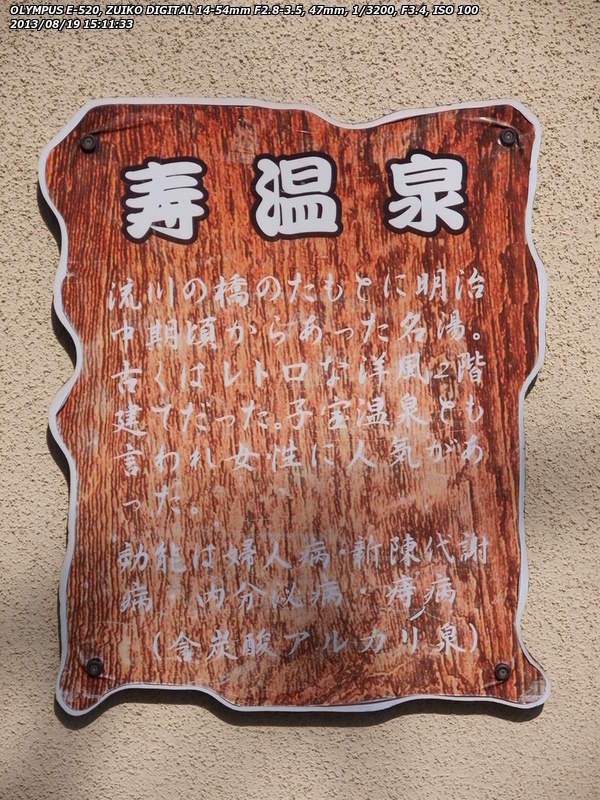 OLYMPUS E-520, ZUIKO DIGITAL 14-54mm F2.8-3.5, 47mm, 1/3200, F3.4, ISO 100
2013/08/19 15:11:33
寿温泉
流川の橋のたもとに明治
中期頃からあった名湯。
古くはレトロな洋風2階
建てだった。子宝温泉とも
言われ女性に人気があ
った。
効能は婦人病・新陳代謝
病・内分泌病・痔病
(含炭酸アルカリ泉)